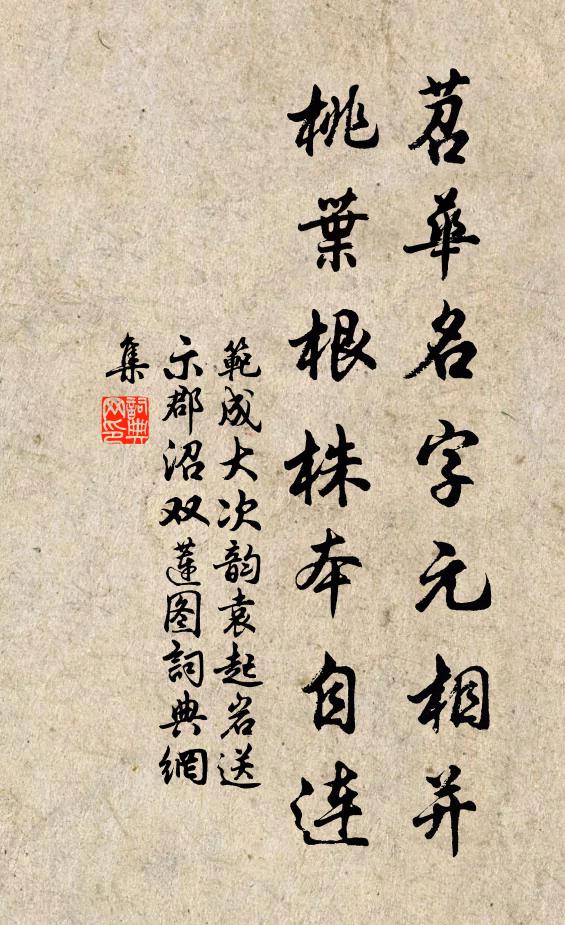 苕華名字元相并
桃葉根株本自连
範成大次韵袁起岩送
示郡沼双蓮图詞典網
集
詞典网印